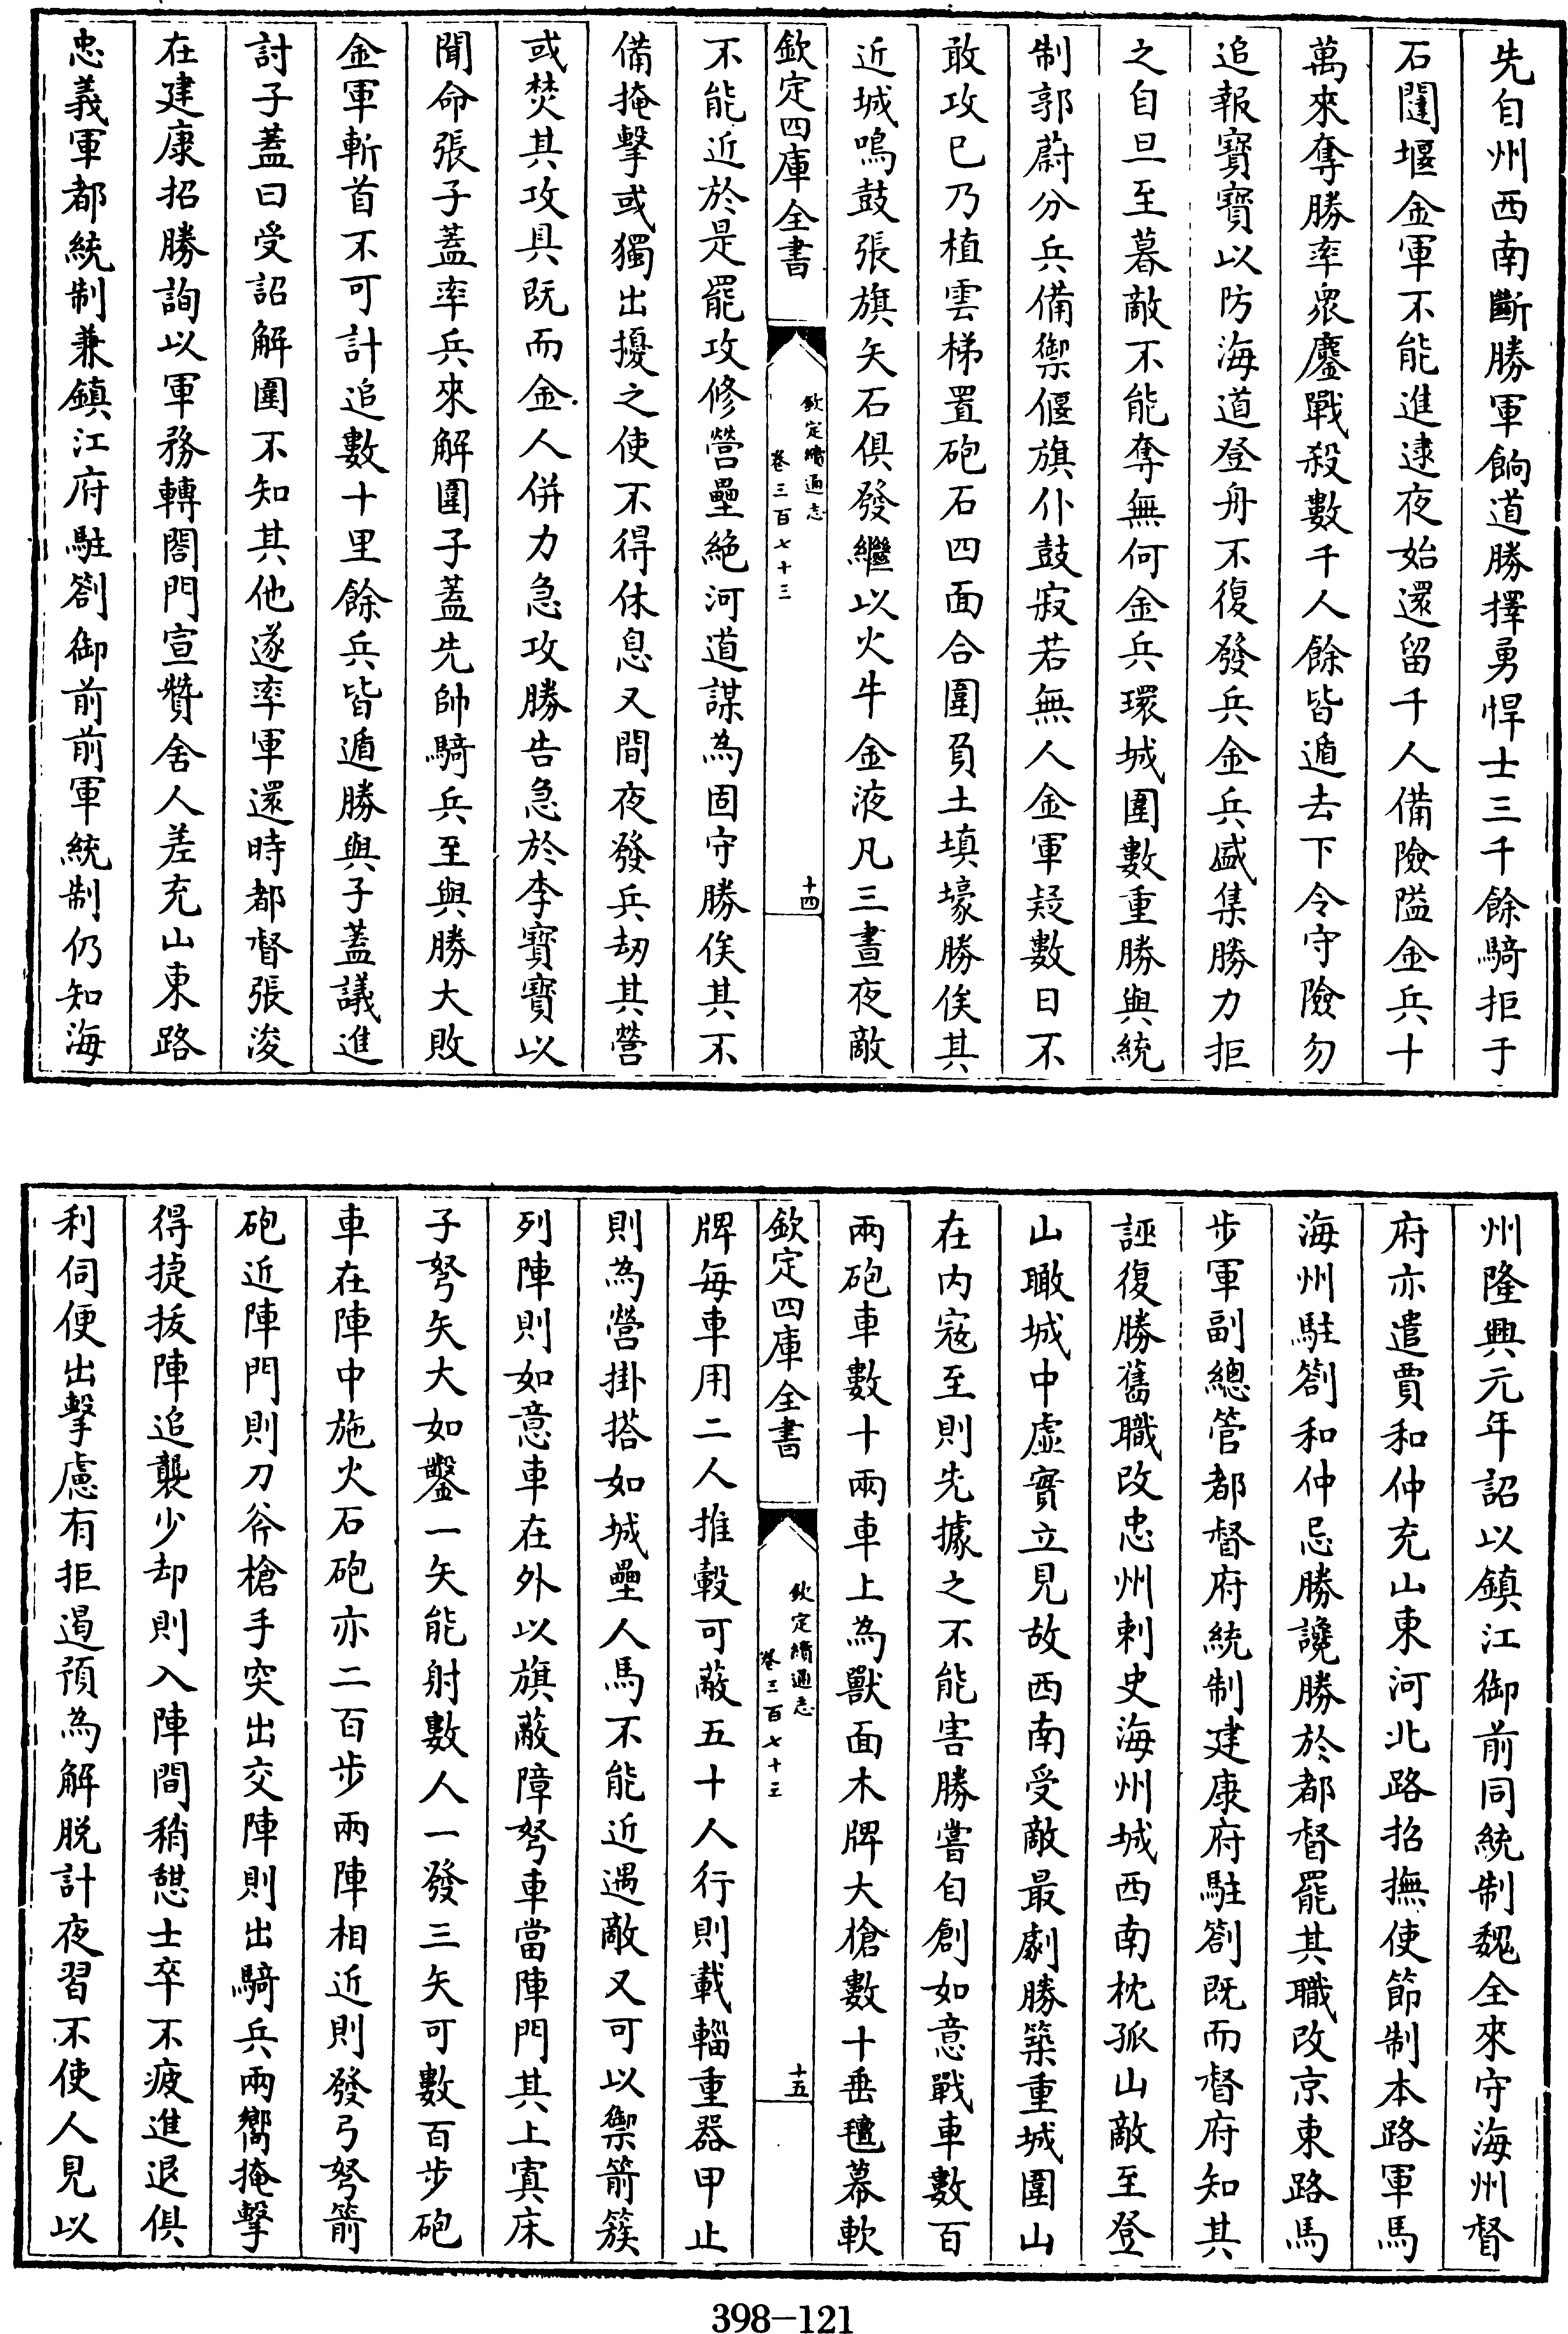 先自州西南斷勝軍餉道勝擇勇悍士三千餘騎拒于
石闥堰金軍不能進逮夜始還留千人備險隘金兵十
萬來奪勝率衆鏖戰殺數千人餘皆遁去下令守險勿
追報寶寶以防海道登舟不復發兵金兵盛集勝力拒
之自旦至暮敵不能奪無何金兵環城圍數重勝與統
制郭蔚分兵備禦偃旗仆鼓寂若無人金軍疑數日不
敢攻已乃植雲梯置砲石四面合圍負土填壕勝俟其
近城鳴鼓張旗矢石俱發繼以火牛金液凡三晝夜敵
欽定四庫全書
欽定續通志
卷三百七十三
十四
不能近於是罷攻修營壘絶河道謀為固守勝俟其不
備掩擊或獨出擾之使不得休息又間夜發兵刼其營
或焚其攻具既而金人併力急攻勝告急於李寶寶以
聞命張子蓋率兵來解圍子蓋先帥騎兵至與勝大敗
金軍斬首不可計追數十里餘兵皆遁勝與子蓋議進
討子蓋曰受詔解圍不知其他遂率軍還時都督張浚
在建康招勝詢以軍務轉閤門宣贊舍人差充山東路
忠義軍都統制兼鎮江府駐劄御前前軍統制仍知海
州隆興元年詔以鎮江御前同統制魏全來守海州督
府亦遣賈和仲充山東河北路招撫使節制本路軍馬
海州駐劄和仲忌勝讒勝於都督罷其職改京東路馬
步軍副總管都督府統制建康府駐劄既而督府知其
誣復勝舊職改忠州刺史海州城西南枕孤山敵至登
山瞰城中虛實立見故西南受敵最劇勝築重城圍山
在内寇至則先據之不能害勝嘗自創如意戰車數百
兩砲車數十兩車上為獸面木牌大槍數十垂氊幕軟
欽定四庫全書
欽定續通志
卷三百七十三
十五
牌每車用二人推轂可蔽五十人行則載輜重器甲止
則為營掛搭如城壘人馬不能近遇敵又可以禦箭簇
列陣則如意車在外以旗蔽障弩車當陣門其上寘床
子弩矢大如鑿一矢能射數人一發三矢可數百步砲
車在陣中施火石砲亦二百步兩陣相近則發弓弩箭
砲近陣門則刀斧槍手突出交陣則出騎兵兩嚮掩擊
得捷拔陣追襲少却則入陣間稍憩士卒不疲進退俱
利伺便出擊慮有拒遏預為解脱計夜習不使人見以
398-121